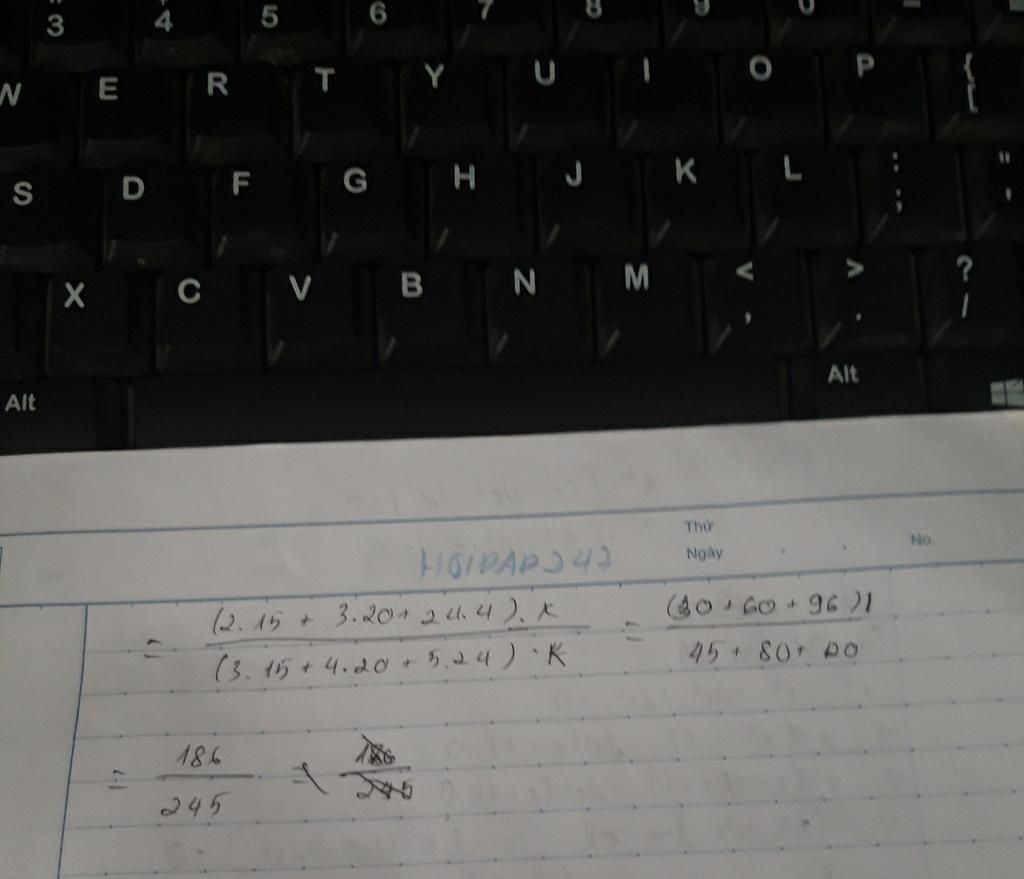 3 4 5 6 7 8 9 0
W E R T Y U I O P { [
S D F G H J K L : ; " '
X C V B N M < , > . ? /
Alt Alt
Thứ
HOIDAP247 Ngày . . No.
= (2.15 + 3.20 + 24.4). K / (3.15 + 4.20 + 5.24) . K = (30 + 60 + 96) / 45 + 80 +
= 186 / 245